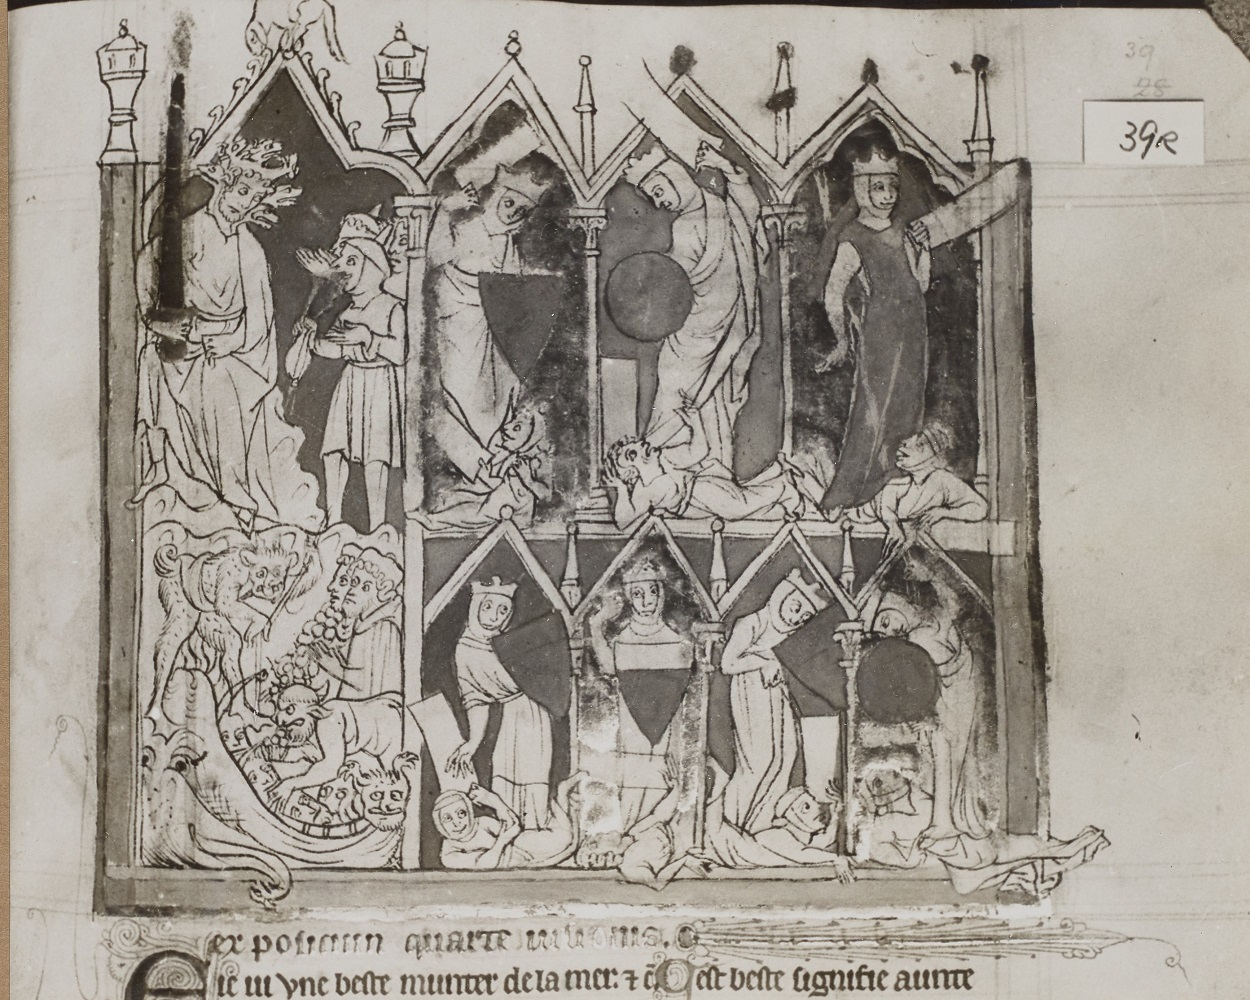 39
28
39R
exposiciun quarte
ie ui vne beste munter de la mer. ⁊ cest beste signifie aunte